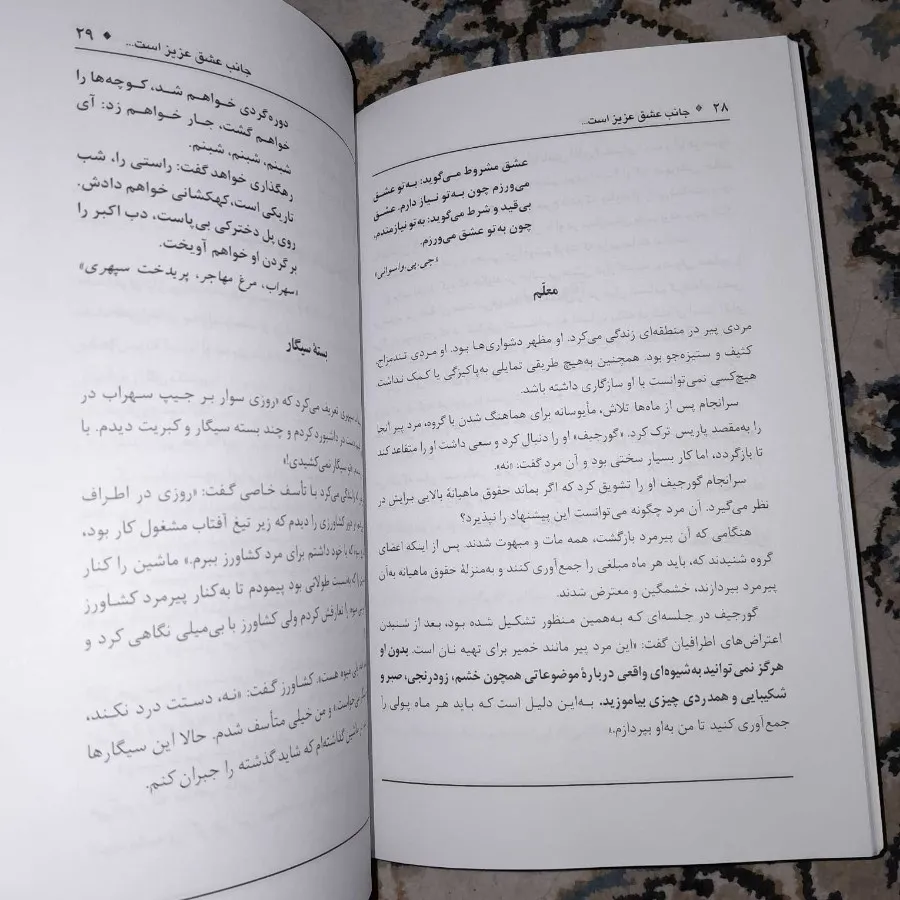 ۲۸ * جانب عشق عزیز است...
عشق مشروط می‌گوید: به‌تو عشق
می‌ورزم چون به‌تو نیاز دارم. عشق
بی‌قید و شرط می‌گوید: به‌تو نیازمندم،
چون به‌تو عشق می‌ورزم.
«جی.پی.واسوانی»
معلّم
مردی پیر در منطقه‌ای زندگی می‌کرد. او مظهر دشواری‌ها بود. او مردی تندمزاج،
کثیف و ستیزه‌جو بود. همچنین به‌هیچ طریقی تمایلی به‌پاکیزگی یا کمک نداشت
هیچ‌کسی نمی‌توانست با او سازگاری داشته باشد.
سرانجام پس از ماه‌ها تلاش، مأیوسانه برای هماهنگ شدن با گروه، مرد پیر آنجا
را به‌مقصد پاریس ترک کرد. «گورجیف» او را دنبال کرد و سعی داشت او را متقاعد کند
تا بازگردد، اما کار بسیار سختی بود و آن مرد گفت: «نه».
سرانجام گورجیف او را تشویق کرد که اگر بماند حقوق ماهیانهٔ بالایی برایش در
نظر می‌گیرد. آن مرد چگونه می‌توانست این پیشنهاد را نپذیرد؟
هنگامی که آن پیرمرد بازگشت، همه مات و مبهوت شدند. پس از اینکه اعضای
گروه شنیدند که، باید هر ماه مبلغی را جمع‌آوری کنند و به‌منزلهٔ حقوق ماهیانه به‌آن
پیرمرد بپردازند، خشمگین و معترض شدند.
گورجیف در جلسه‌ای که به‌همین منظور تشکیل شده بود، بعد از شنیدن
اعتراض‌های اطرافیان گفت: «این مرد پیر مانند خمیر برای تهیه نان است. بدون او
هرگز نمی‌توانید به‌شیوه‌ای واقعی دربارهٔ موضوعاتی همچون خشم، زودرنجی، صبر و
شکیبایی و همدردی چیزی بیاموزید. به‌این دلیل است که باید هر ماه پولی را
جمع‌آوری کنید تا من به‌او بپردازم.»
جانب عشق عزیز است... ◆ ۲۹
دوره‌گردی خواهم شد، کوچه‌ها را
خواهم گشت، جار خواهم زد: آی
شبنم، شبنم، شبنم.
رهگذاری خواهد گفت: راستی را، شب
تاریکی است، کهکشانی خواهم دادش.
روی پل دخترکی بی‌پاست، دب اکبر را
بر گردن او خواهم آویخت.
«سهراب، مرغ مهاجر، پریدخت سپهری»
بستهٔ سیگار
تعریف می‌کرد که «روزی سوار بر جیپ سهراب در
داشبورد کردم و چند بسته سیگار و کبریت دیدم. با
سیگار نمی‌کشیدی!»
با تأسف خاصی گفت: «روزی در اطراف
کشاورزی را دیدم که زیر تیغ آفتاب مشغول کار بود،
با خود داشتم برای مرد کشاورز ببرم.» ماشین را کنار
طولانی بود پیمودم تا به‌کنار پیرمرد کشاورز
را تعارفش کردم ولی کشاورز با بی‌میلی نگاهی کرد و
هست». کشاورز گفت: «نه، دستت درد نکند،
و من خیلی متأسف شدم. حالا این سیگارها
گذاشته‌ام که شاید گذشته را جبران کنم.